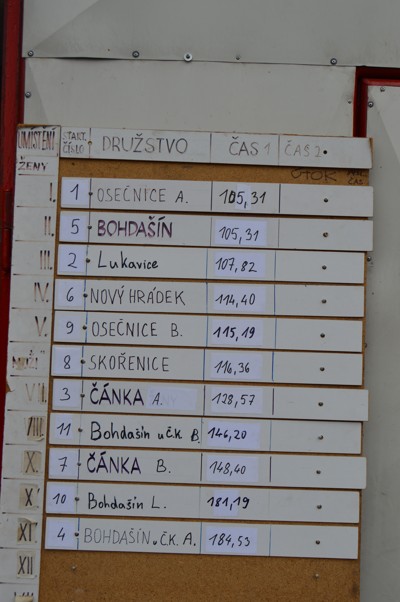 UMÍSTĚNÍ START. ČÍSLO DRUŽSTVO ČAS 1 ČAS 2
ŽENY
I. 1 OSEČNICE A. 105,31
II. 5 BOHDAŠÍN 105,31
III. 2 Lukavice 107,82
IV. 6 NOVÝ HRÁDEK 114,40
V. 9 OSEČNICE B. 115,19
8 SKOŘENICE 116,36
VII. 3 ČÁNKA A. 128,57
VIII. 11 Bohdašín u Č.K. B. 146,20
7 ČÁNKA B. 148,40
X. 10 Bohdašín L. 181,19
XI. 4 BOHDAŠÍN u Č.K. A. 184,53
XII